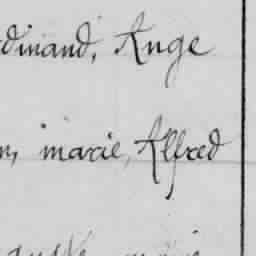 dinand, Ange
n, marie, Alfred